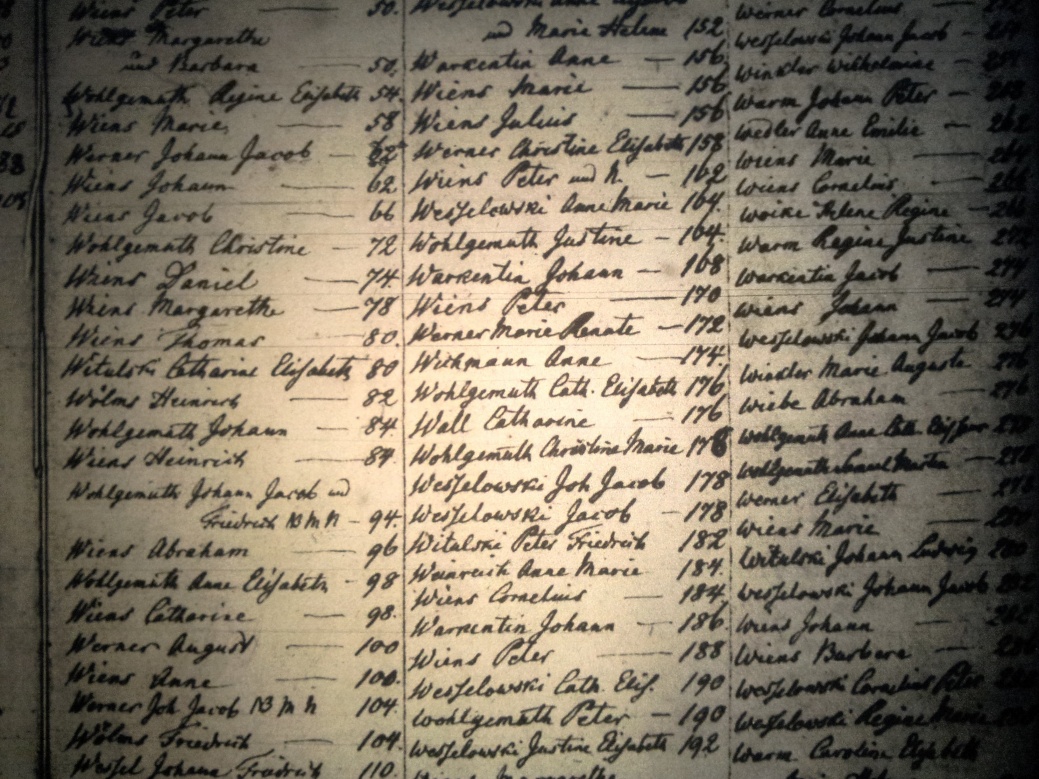 Wiens Peter 50.
Wiens Margarethe
und Barbara 50.
Wohlgemuth Regine Elisabeth 54.
Wiens Marie, 58
Werner Johann Jacob 62
Wiens Johann 62.
Wiens Jacob 66
Wohlgemuth Christine 72
Wiens Daniel 74.
Wiens Margarethe 78
Wiens Thomas 80.
Witulski Catharine Elisabeth 80
Wölms Heinrich 82
Wohlgemuth Johann 84.
Wiens Heinrich 84.
Wohlgemuth Johann Jacob und
Friedrich 94.
Wiens Abraham 96
Wohlgemuth Anne Elisabeth 98
Wiens Catharine 98.
Werner August 100
Wiens Anne 100.
Werner Joh Jacob 104.
Wölms Friedrich 104.
Wessel Johann Friedrich 110.
Wesselowski Anne
und Marie Helene 152
Warkentin Anne 156.
Wiens Marie 156
Wiens Julius 156
Werner Christine Elisabeth 158
Wiens Peter und N. 162
Wesselowski Anne Marie 164.
Wohlgemuth Justine 164.
Warkentin Johann 168
Wiens Peter 170
Werner Marie Renate 172
Wichmann Anne 174.
Wohlgemuth Cath. Elisabeth 176
Wall Catharine 176
Wohlgemuth Christine Marie 178
Wesselowski Joh Jacob 178
Wesselowski Jacob 178
Witulski Peter Friedrich 182
Weinreich Anne Marie 184.
Wiens Cornelius 184
Warkentin Johann 186
Wiens Peter 188
Wesselowski Cath. Elis. 190
Wohlgemuth Peter 190
Wesselowski Justine Elisabeth 192
Wiens Margarethe
Werner Cornelius
Wesselowski Johann Jacob
Winkler Wilhelmine
Warm Johann Peter
Wedler Anne Emilie
Wiens Marie
Wiens Cornelius
Woike Helene Regine
Warm Regine Justine
Warkentin Jacob 274
Wiens Johann 274
Wesselowski Johann Jacob
Winkler Marie Auguste
Wiebe Abraham
Wohlgemuth Anne Cath.
Wohlgemuth Samuel Martin
Werner Elisabeth
Wiens Marie
Witulski Johann Ludwig
Wesselowski Johann Jacob
Wiens Johann
Wiens Barbara
Wesselowski Cornelius Peter
Wesselowski Regine Marie
Warm Caroline Elisabeth